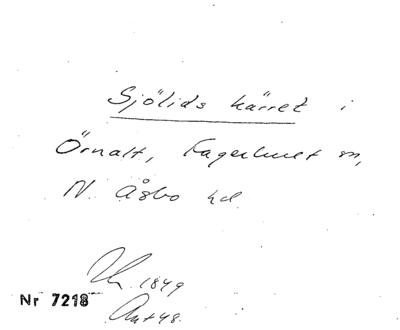 Sjölids kärret i
Örnalt, Fagerhult sn,
N. Åsbo hd
1849
Nr 7218